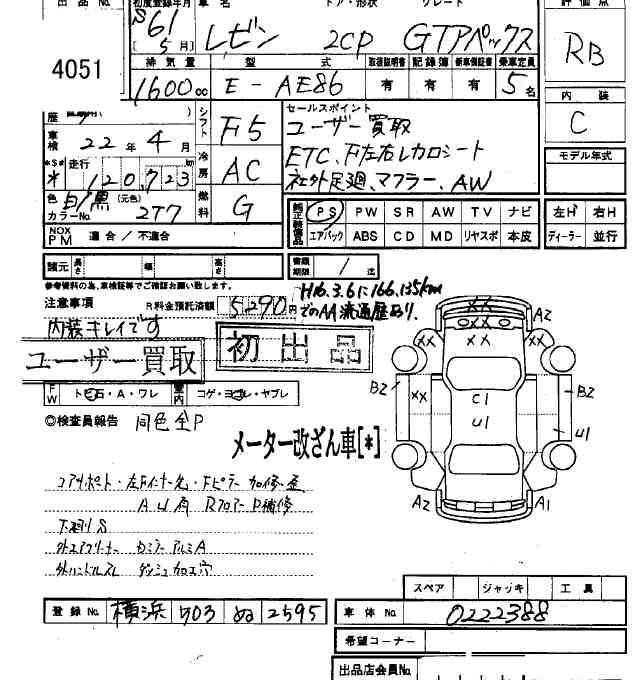 出品 No. 初度登録年月 車名 ドア・形状 グレード 評価点
4051 S61 5月 レビン 2CP GTアペックス RB
排気量 型式 取扱説明書 記録簿 新車保証書 乗車定員
1600 cc E-AE86 有 有 有 5名
内装
C
歴
車検 22年4月 シフト F5 セールスポイント
ユーザー買取
*$# 走行 km 冷房 AC ETC、F左右レカロシート モデル年式
* 120,723 社外足廻、マフラー、AW
色 白/黒 (元色) 燃料 G
カラーNo. 2T7
純正装備品 PS PW SR AW TV ナビ 左H 右H
NOX PM 適合/不適合 エアバック ABS CD MD リヤスポ 本皮 ディーラー 並行
諸元 長さ 幅 高さ 書類期限 / 迄
参考資料の為、車検証等でご確認お願い致します。
注意事項 R料金預託済額 5,290円 H16.3.6に166,135km
でのAA流通歴あり。
内装キレイです
ユーザー買取 初出品
FW トビ石・A・ワレ 室内 コゲ・ヨゴレ・ヤブレ
◎検査員報告 同色全P
メーター改ざん車[*]
コアサポート・左Fインナー先・Fピラー加修・歪
Rフロアー P補修
下廻りS
外エアクリーナー
外ハンドル ダッシュ加工穴
XX A2
XX XX
B2 XX C1 B2
U1 U1
A2 A1
スペア ジャッキ 工具
登録No. 横浜 503 ぬ 2595 車体No. 0222388
希望コーナー
出品店会員No.